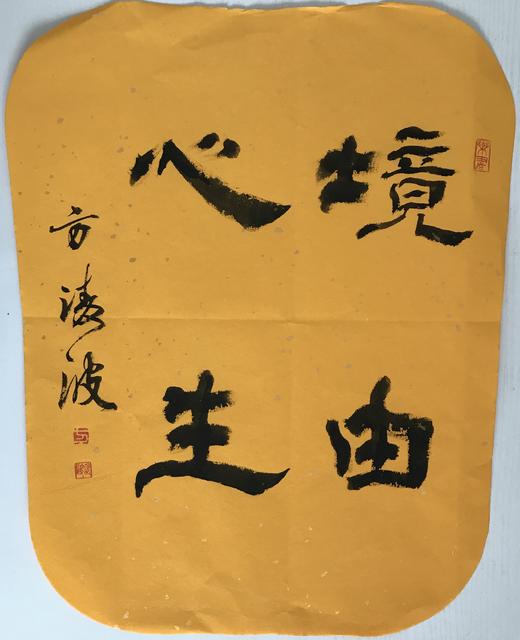 境由
心生
方涛波